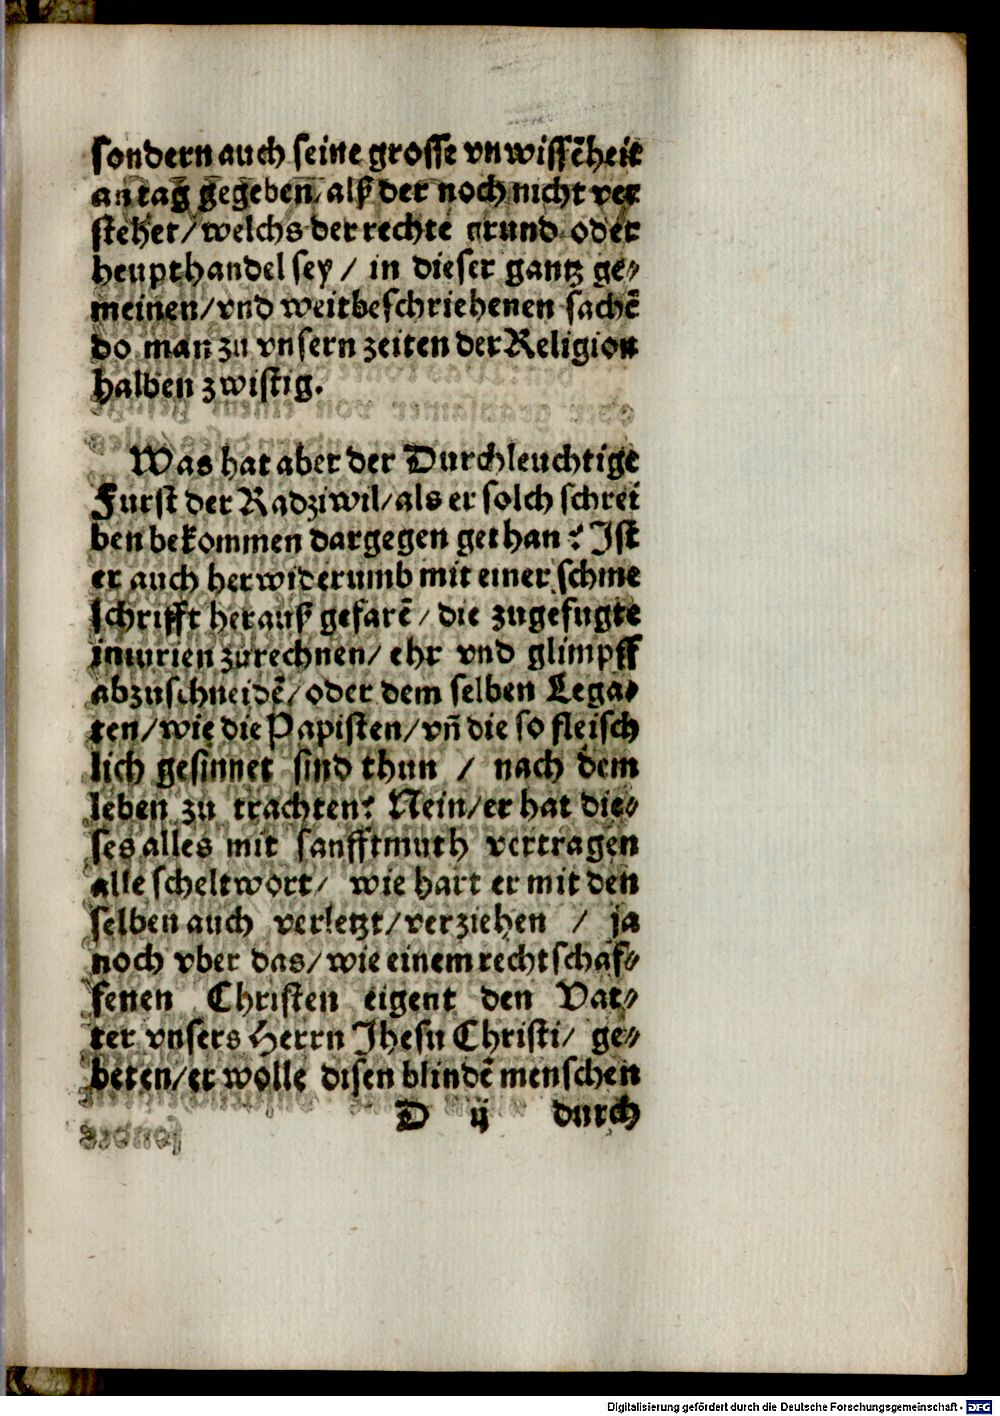 sondern auch seine grosse vnwissẽheit
an tag gegeben/ alß der noch nicht ver
stehet/ welchs der rechte grund oder
heupthandel sey / in dieser gantz ge⸗
meinen/ vnd weitbeschriehenen sachẽ
do man zu vnsern zeiten der Religion
halben zwistig.
Was hat aber der Durchleuchtige
Furst der Radziwil/ als er solch schrei
ben bekommen dargegen gethan? Ist
er auch herwiderumb mit einer schme
schrifft herauß gefarẽ / die zugefugte
iniurien zurechnen/ ehr vnd glimpff
abzuschneidẽ/ oder dem selben Lega⸗
ten/ wie die Papisten/ vñ die so fleisch
lich gesinnet sind thun / nach dem
leben zu trachten? Nein/ er hat die⸗
ses alles mit sanfftmuth vertragen
alle scheltwort/ wie hart er mit den
selben auch verletzt/ verziehen / ja
noch vber das/ wie einem rechtschaf⸗
fenen Christen eigent den Vat⸗
ter vnsers Herrn Jhesu Christi/ ge⸗
beten/ er wolle disen blindẽ menschen
D ij durch
Digitalisierung gefördert durch die Deutsche Forschungsgemeinschaft - DFG